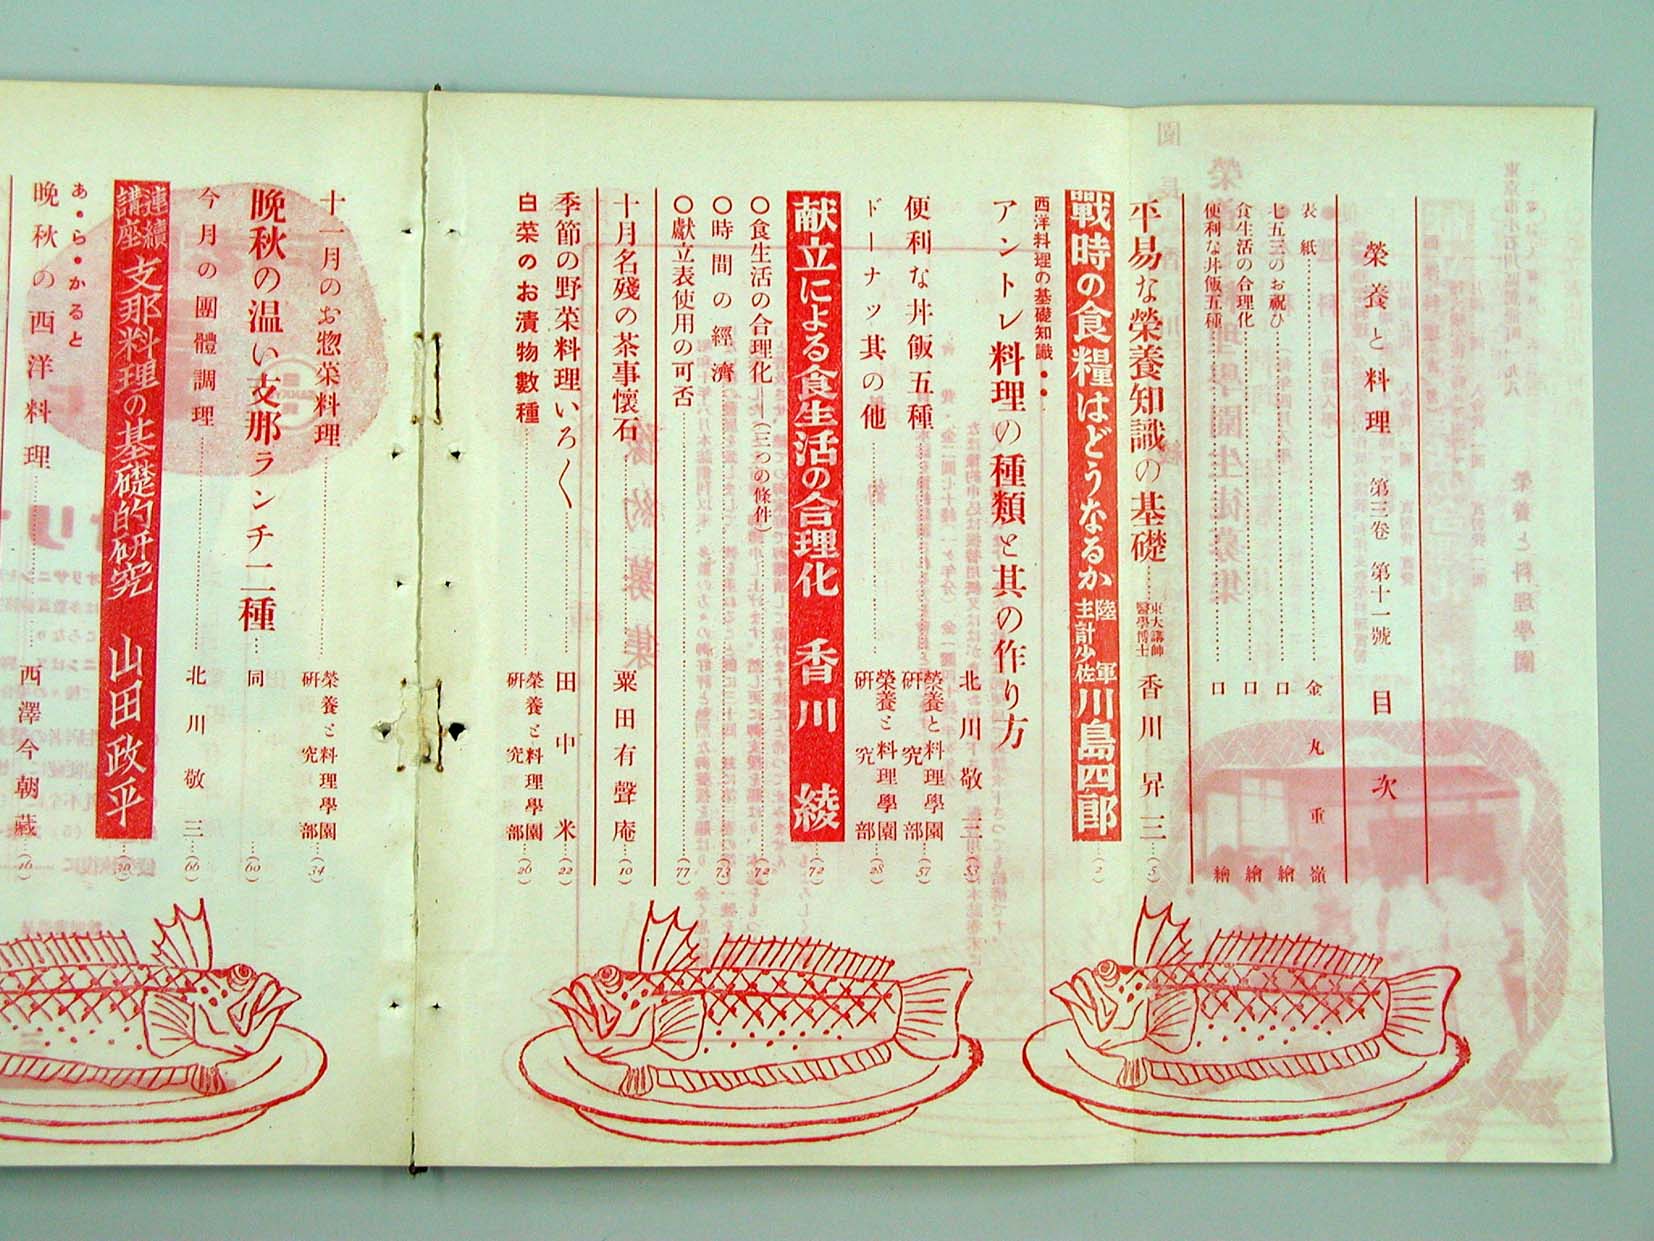 榮養と料理 第三卷 第十一號 目次
表紙……金丸重嶺
七五三のお祝ひ……口繪
食生活の合理化……口繪
便利な丼飯五種……口繪
平易な榮養知識の基礎……東大講師 醫學博士 香川昇三…(5)
戰時の食糧はどうなるか 陸軍主計少佐 川島四郎…(2)
西洋料理の基礎知識・・
アントレ料理の種類と其の作り方 北川敬三…(53)
便利な丼飯五種……榮養と料理學園研究部…(57)
ドーナツ其の他……榮養と料理學園研究部…(28)
献立による食生活の合理化 香川 綾…(72)
○食生活の合理化(三つの條件)……(72)
○時間の經濟……(73)
○獻立表使用の可否……(77)
十月名殘の茶事懷石……粟田有聲庵…(10)
季節の野菜料理いろ〱……田中米…(22)
白菜のお漬物數種……榮養と料理學園研究部…(26)
十一月のお惣菜料理……榮養と料理學園研究部…(34)
晩秋の温い支那ランチ二種…同……(60)
今月の團體調理……北川敬三…(66)
連續講座 支那料理の基礎的研究 山田政平…
あ・ら・かると
晩秋の西洋料理……西澤今朝藏…(16)